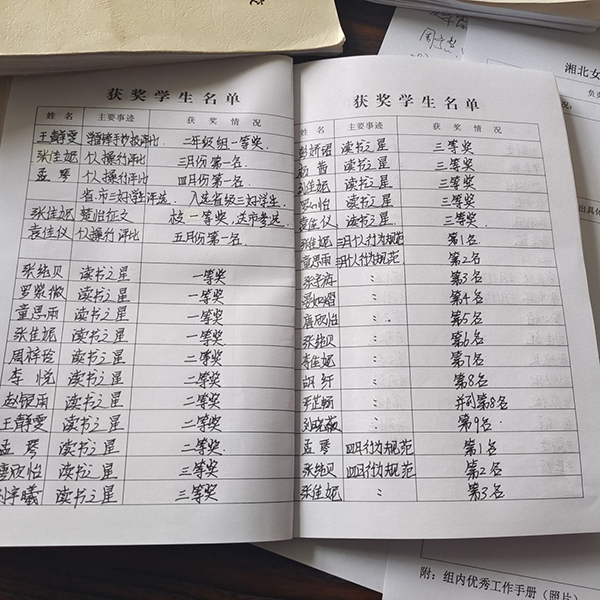 获奖学生名单
姓名 主要事迹 获奖情况
王静雯 手抄报评比 二年级组一等奖
张佳妮 个人操行评比 三月份第一名
孟琴 个人操行评比 四月份第一名
省.市三好学生评选 入选省级三好学生
张佳妮 征文 校一等奖,送市参选
袁佳仪 个人操行评比 五月份第一名
张纯贝 读书之星 一等奖
罗紫微 读书之星 一等奖
童思雨 读书之星 一等奖
张佳妮 读书之星 一等奖
周梓玲 读书之星 二等奖
李悦 读书之星 二等奖
赵银雨 读书之星 二等奖
王静雯 读书之星 二等奖
孟琴 读书之星 二等奖
唐欣怡 读书之星 三等奖
宇曦 读书之星 三等奖
获奖学生名单
姓名 主要事迹 获奖情况
读书之星 三等奖
读书之星 三等奖
佳妮 读书之星 三等奖
心怡 读书之星 三等奖
袁佳仪 读书之星 三等奖
张佳妮 三月个人行为规范 第1名
童思雨 三月个人行为规范 第2名
张宇海 〃 第3名
〃 第4名
唐欣怡 〃 第5名
张纯贝 〃 第6名
李佳妮 〃 第7名
胡纤 〃 第8名
芷畅 〃 并列第8名
刘晓薇 〃 第9名
孟琴 四月行为规范 第1名
张纯贝 四月行为规范 第2名
张佳妮 〃 第3名
湘北女
负责
出具体
附:组内优秀工作手册(照片)